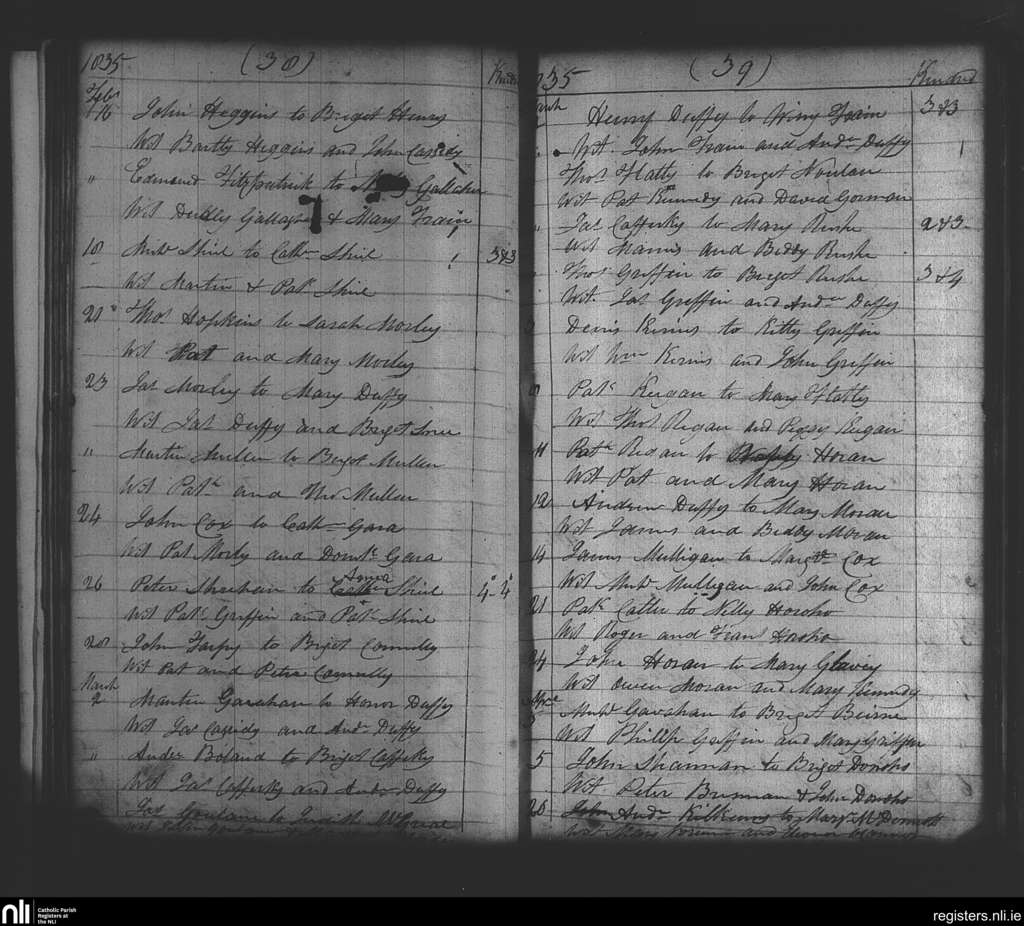 1835 (38) Kindred
Feb
16 John Heggins to Briget Henry
Wit Bartly Higgins and John Cassidy
" Edmund Fitzpatrick to Gallaher
Wit Dudly Gallagher & Mary Frain
18 Mich Shiel to Cath Shiel 3&3
Wit Martin & Pat Shiel
20 Thos Hopkins to Sarah Morley
Wit Pat and Mary Morley
23 Jas Morley to Mary Duffy
Wit Jas Duffy and Briget
" Martin Mullen to Briget Mullen
Wit Patk and Thos Mullen
24 John Cox to Cath Gara
Wit Pat Morly and Domk Gara
26 Peter to Anna Shiel 4 4
Wit Patk Griffin and Patk Shiel
28 John Tarpy to Briget Connolly
Wit Pat and Peter Connolly
March
2 Martin Gavahan to Honor Duffy
Wit Jas Cassidy and Andw Duffy
" Andw Boland to Briget Cafferky
Wit Jas Cafferky and Andw Duffy
Jas to Judith
1835 (39) Kindred
March Henry Duffy to Winy Frain 3&3
Wit John Frain and Andw Duffy
Thos Flatly to Briget Noulan
Wit Pat Kennedy and David Gorman
" Jas Cafferky to Mary Rushe 2&3
Wit Manus and Biddy Rushe
Thos Griffin to Briget Rushe 3&4
Wit Jas Griffin and Andw Duffy
Denis Kerins to Kitty Griffin
Wit Wm Kerins and John Griffin
Patk Regan to Mary Flatly
Wit Thos Regan and Pegsy Regan
11 Patk Regan to Horan
Wit Pat and Mary Horan
12 Andrew Duffy to Mary Moran
Wit James and Biddy Moran
14 James Mulligan to Margt Cox
Wit Mich Mulligan and John Cox
21 Patk to Nelly Horoho
Wit Roger and Fran Horoho
24 John Horan to Mary Glavey
Wit Owen Moran and Mary Kennedy
Mich Gavahan to Briget Beirne
Wit Philip Griffin and Mary Griffin
5 John Shannan to Briget
Wit Peter Brennan & John
20 Andw to Mary McDermott
Wit Mary and
nli Catholic Parish
Registers at
the NLI
registers.nli.ie